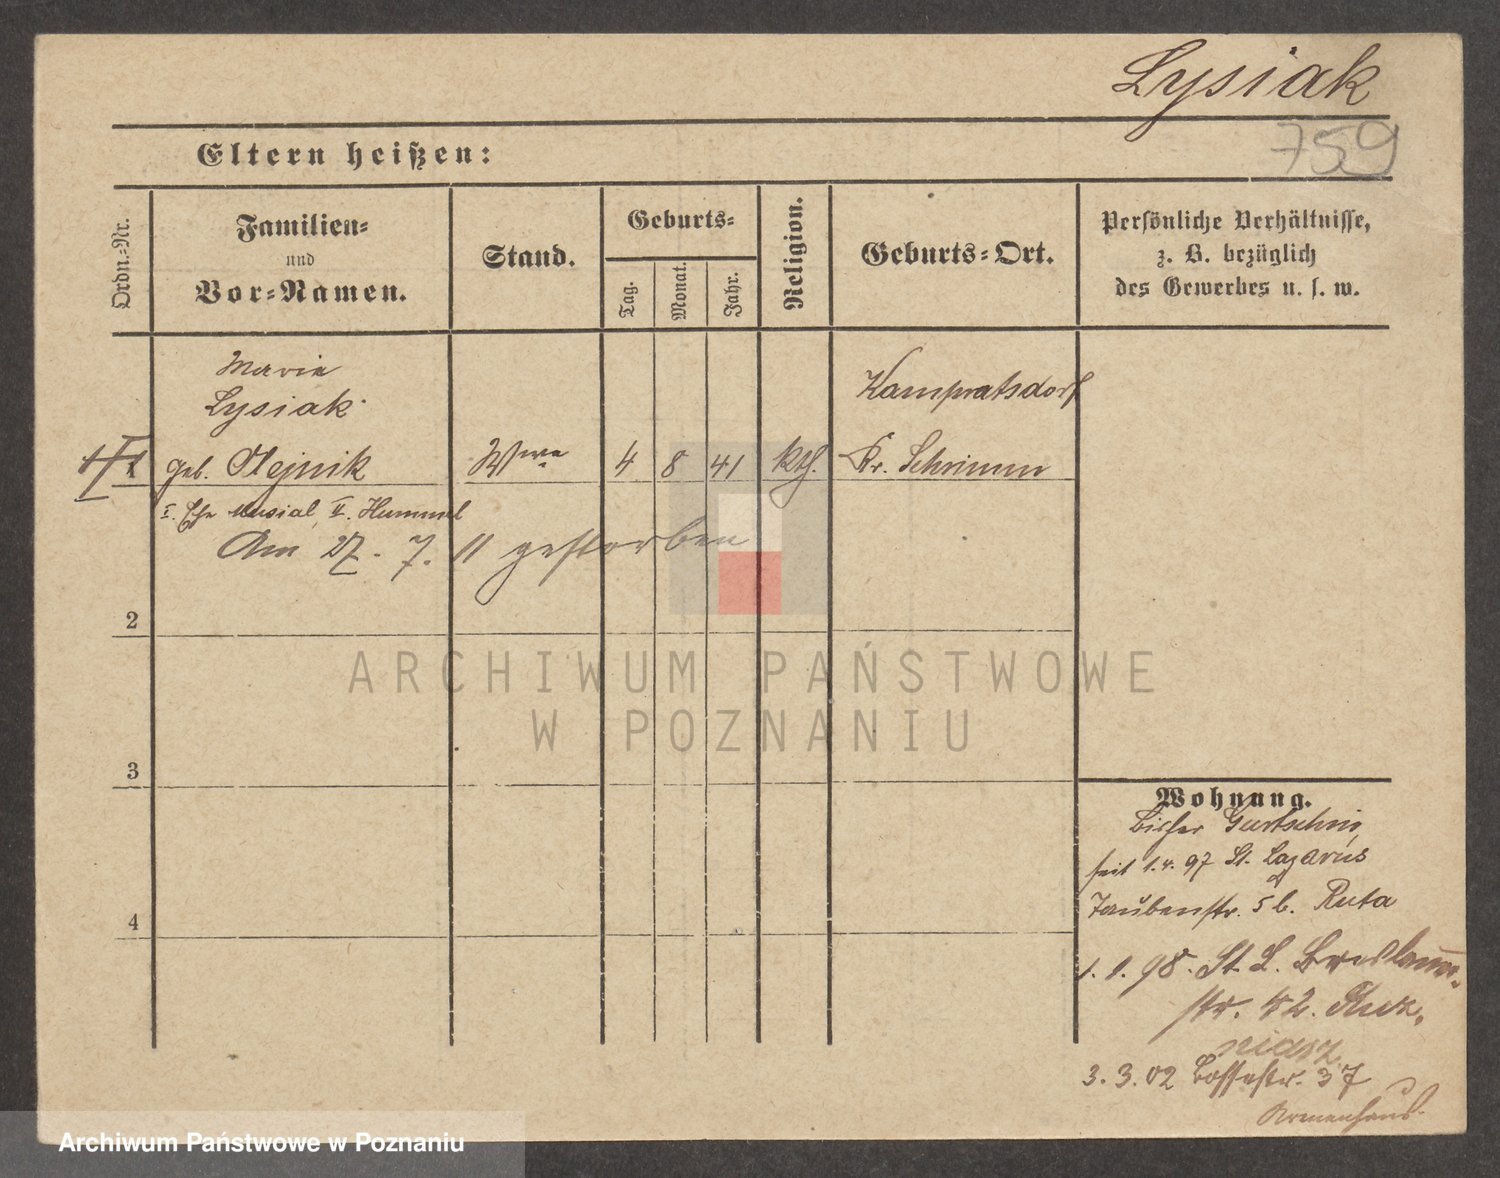 Lysiak
759
Eltern heißen:
Ordn.-Nr.
Familien-
und
Vor-Namen.
Stand.
Geburts-
Tag.
Monat.
Jahr.
Religion.
Geburts-Ort.
Persönliche Verhältnisse,
z. B. bezüglich
des Gewerbes u. s. w.
Marie
Lysiak
1 geb. Olejnik Wwe 4 8 41 kth. Kr. Schrimm
Kampratsdorf
I. Ehe Musial, II. Hummel
Am 27. 7. 11 gestorben
2
3
4
ARCHIWUM PAŃSTWOWE
W POZNANIU
Wohnung.
bisher Gurtschin,
seit 1.4.97 St. Lazarus
Taubenstr. 5b. Ruta
1.1.98. St. L. Breslauer-
str. 42.
3.3.02 37
Armenhaus.
Archiwum Państwowe w Poznaniu